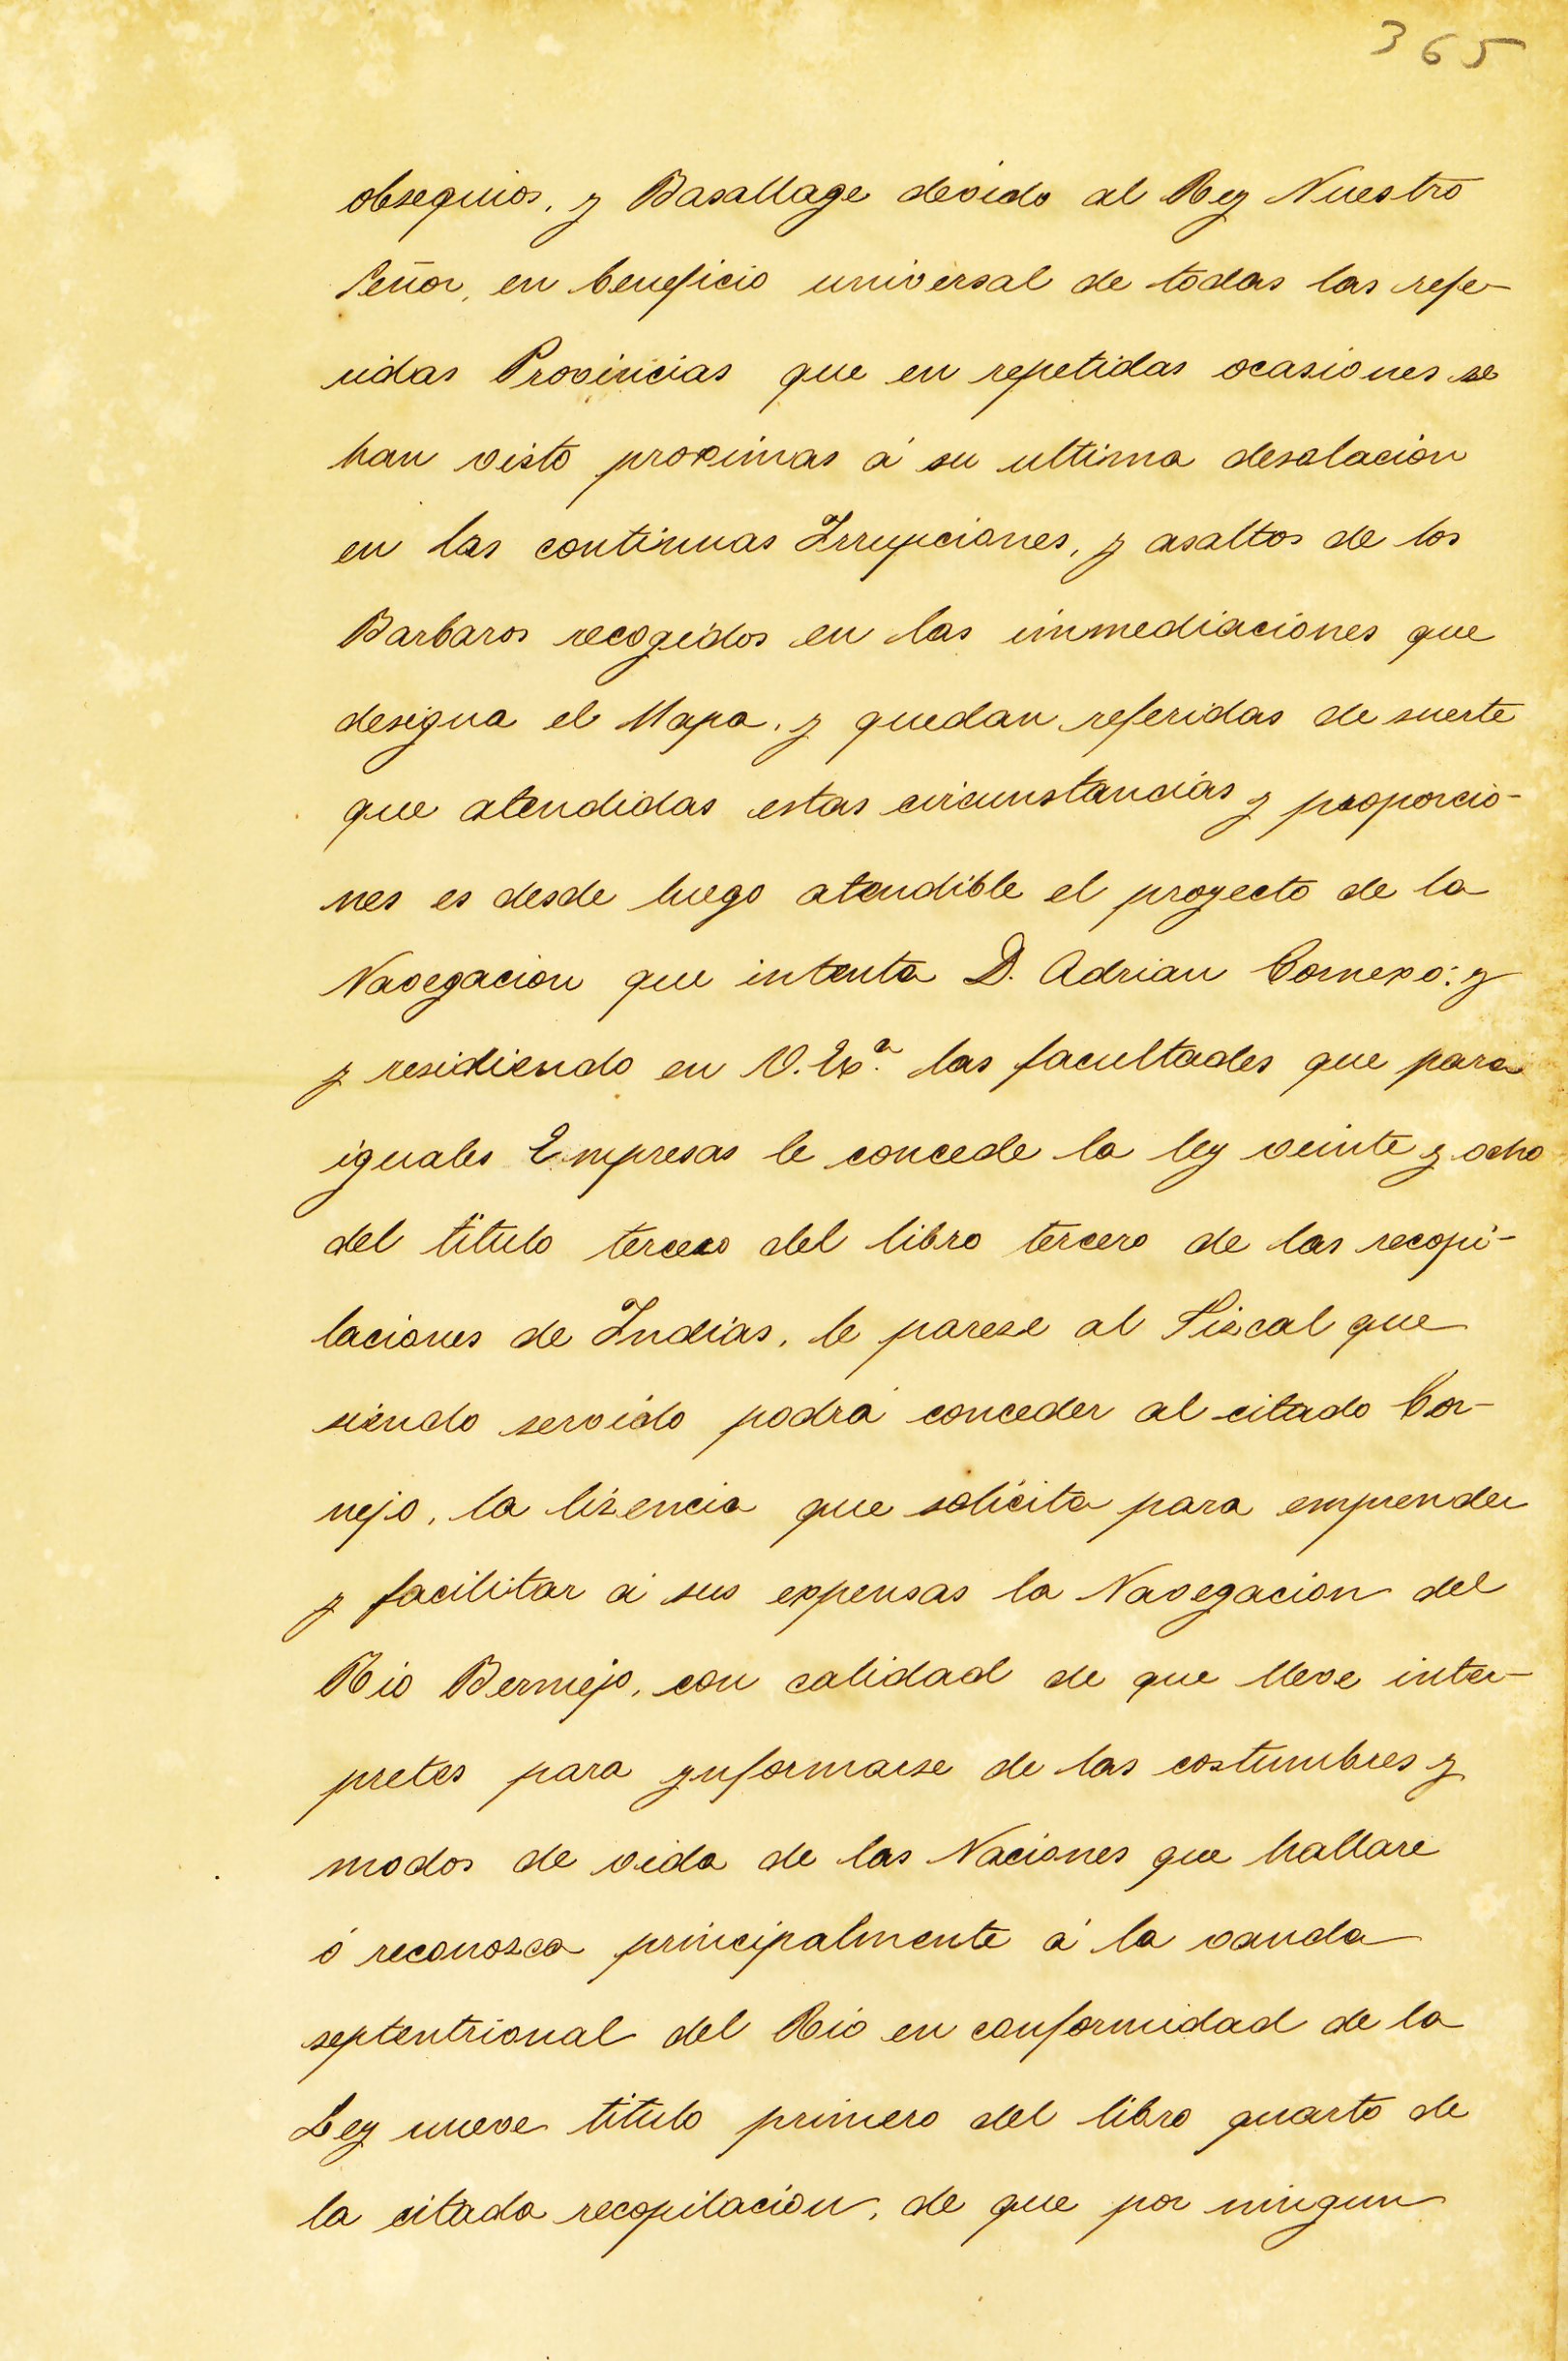 365
obsequios, y Basallage devido al Rey Nuestro
Señor, en beneficio universal de todas las refe-
ridas Provincias que en repetidas ocasiones se
han visto proximas á su ultima desolacion
en las continuas Irrupciones, y asaltos de los
Barbaros recogidos en las immediaciones que
designa el Mapa, y quedan referidas de suerte
que atendidas estas circunstancias y proporcio-
nes es desde luego atendible el proyecto de la
Navegacion que intenta D. Adrian Cornexo: y
y residiendo en V. Exª. las facultades que para
iguales Empresas le concede la ley veinte y ocho
del titulo tercero del libro tercero de las recopi-
laciones de Indias, le pareze al Fiscal que
siendo servido podrá conceder al citado Cor-
nejo, la lizencia que solicita para emprender
y facilitar á sus expensas la Navegacion del
Rio Bermejo, con calidad de que lleve inter-
pretes para ynformarse de las costumbres y
modos de vida de las Naciones que hallare
ó reconozca principalmente á la vanda
septentrional del Rio en conformidad de la
Ley nueve titulo primero del libro quarto de
la citada recopilacion, de que por ningun